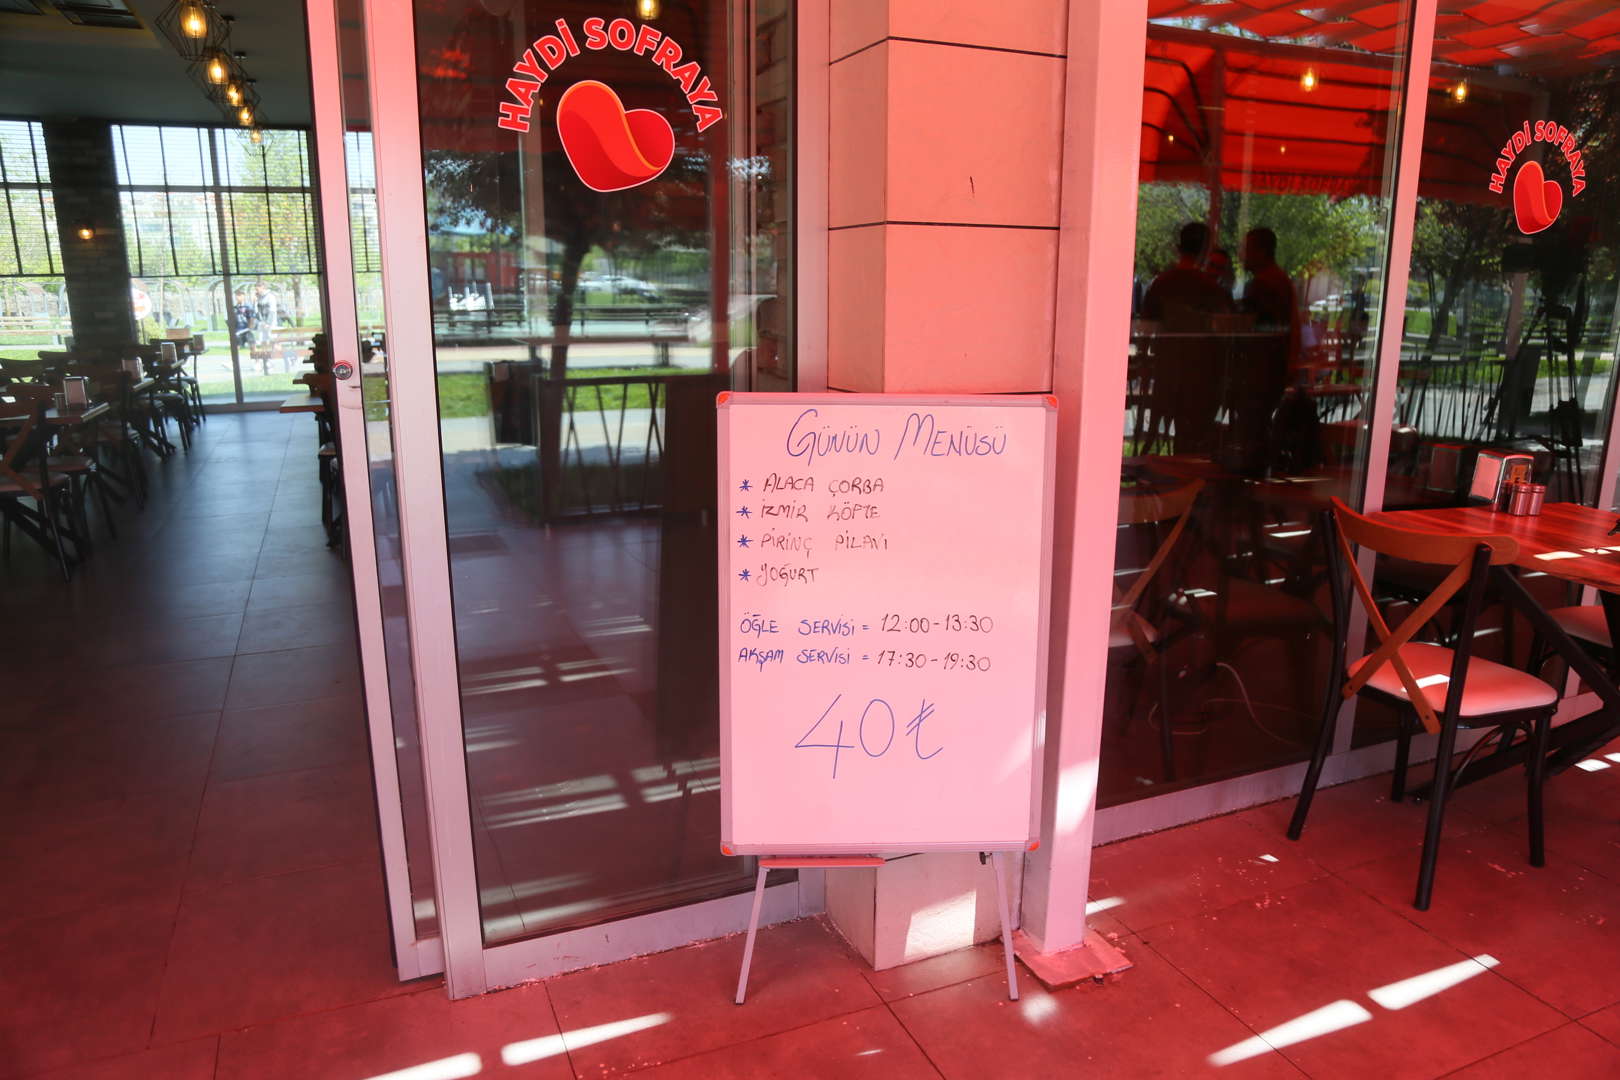 HAYDİ SOFRAYA
HAYDİ SOFRAYA
GÜNÜN MENÜSÜ
* ALACA ÇORBA
* İZMİR KÖFTE
* PİRİNÇ PİLAVI
* YOĞURT
ÖĞLE SERVİSİ = 12:00-13:30
AKŞAM SERVİSİ = 17:30-19:30
40₺